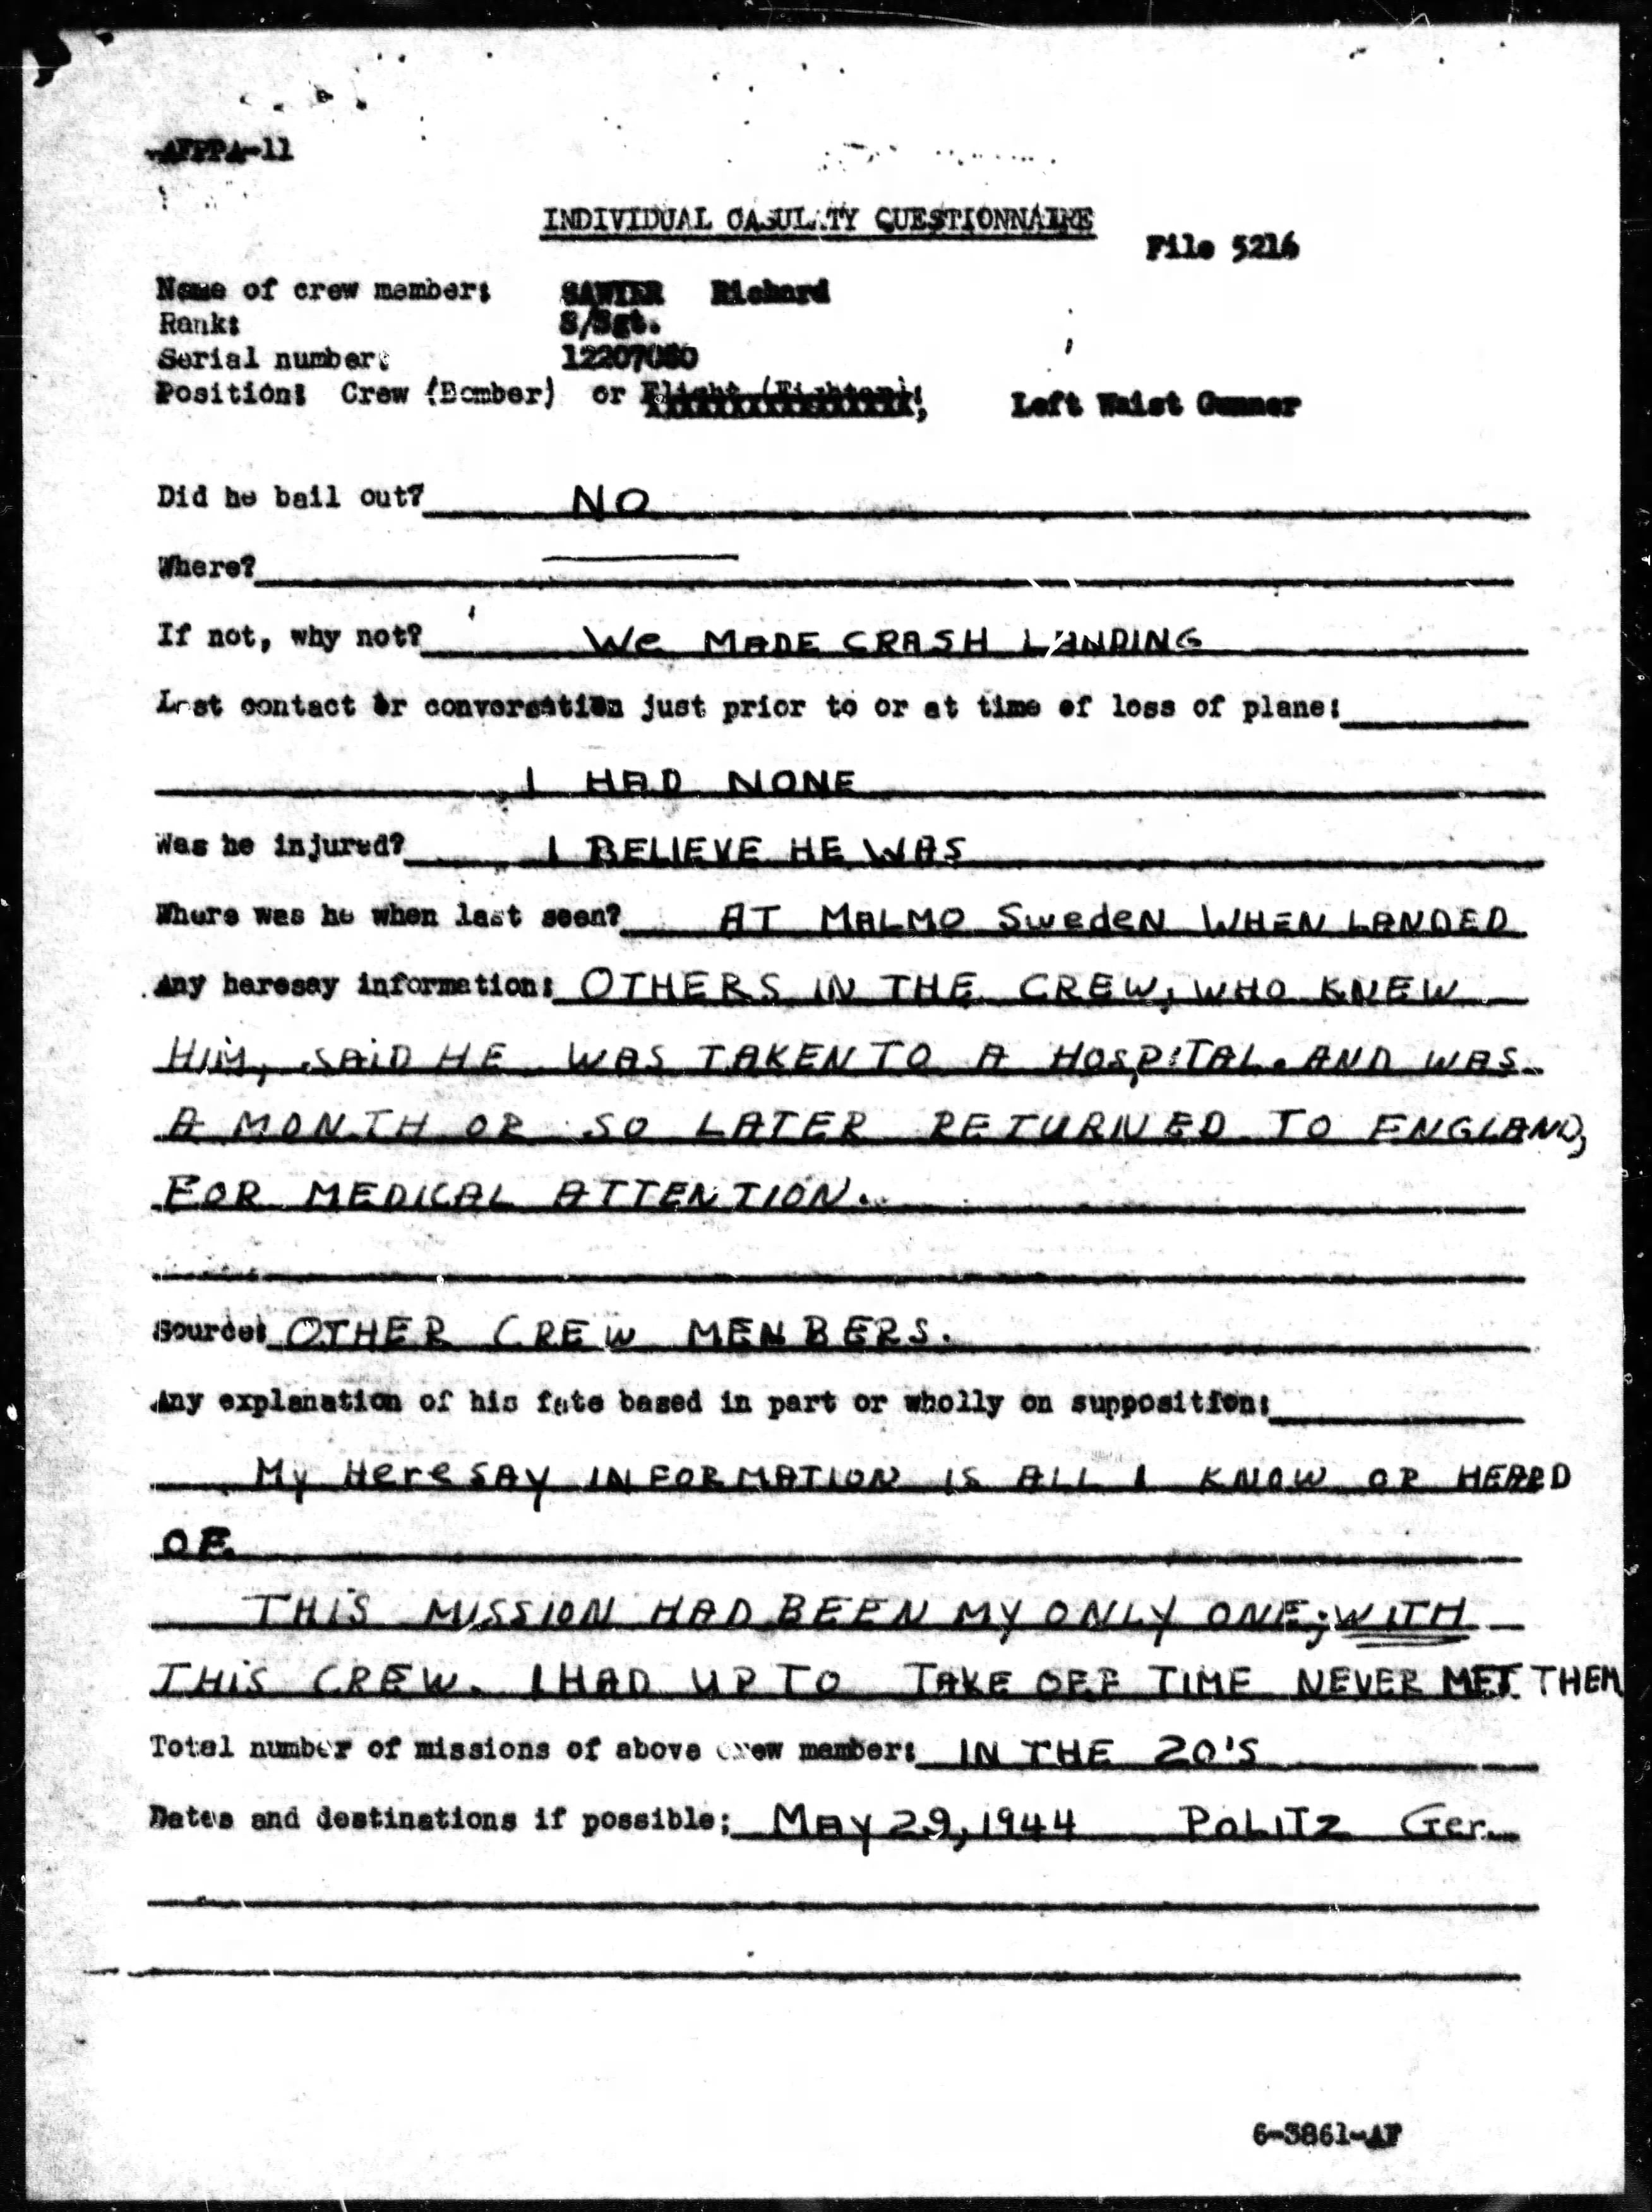 AFPPA-11
INDIVIDUAL CASULATY QUESTIONNAIRE
File 5216
Name of crew member: SAWYER Richard
Rank: S/Sgt.
Serial number:
Position: Crew (Bomber) or Flight (Fighter); Left Waist Gunner
Did he bail out? NO
Where?
If not, why not? We MADE CRASH LANDING
Last contact or conversation just prior to or at time of loss of plane:
I HAD NONE
Was he injured? I BELIEVE HE WAS
Where was he when last seen? AT MALMO SWedeN WHEN LANDED
Any heresay information: OTHERS IN THE CREW, WHO KNEW
HIM, SAID HE WAS TAKEN TO A HOSPITAL. AND WAS
A MONTH OR SO LATER RETURNED TO ENGLAND,
FOR MEDICAL ATTENTION.
Source: OTHER CREW MENBERS.
Any explanation of his fate based in part or wholly on supposition:
My HereSAY INFORMATION IS ALL I KNOW OR HEARD
OF.
THIS MISSION HAD BEEN MY ONLY ONE; WITH
THIS CREW. I HAD UP TO TAKE OFF TIME NEVER MET THEM
Total number of missions of above crew member: IN THE 20'S
Dates and destinations if possible; MAY 29, 1944 POLITZ Ger.
6-3861-AF